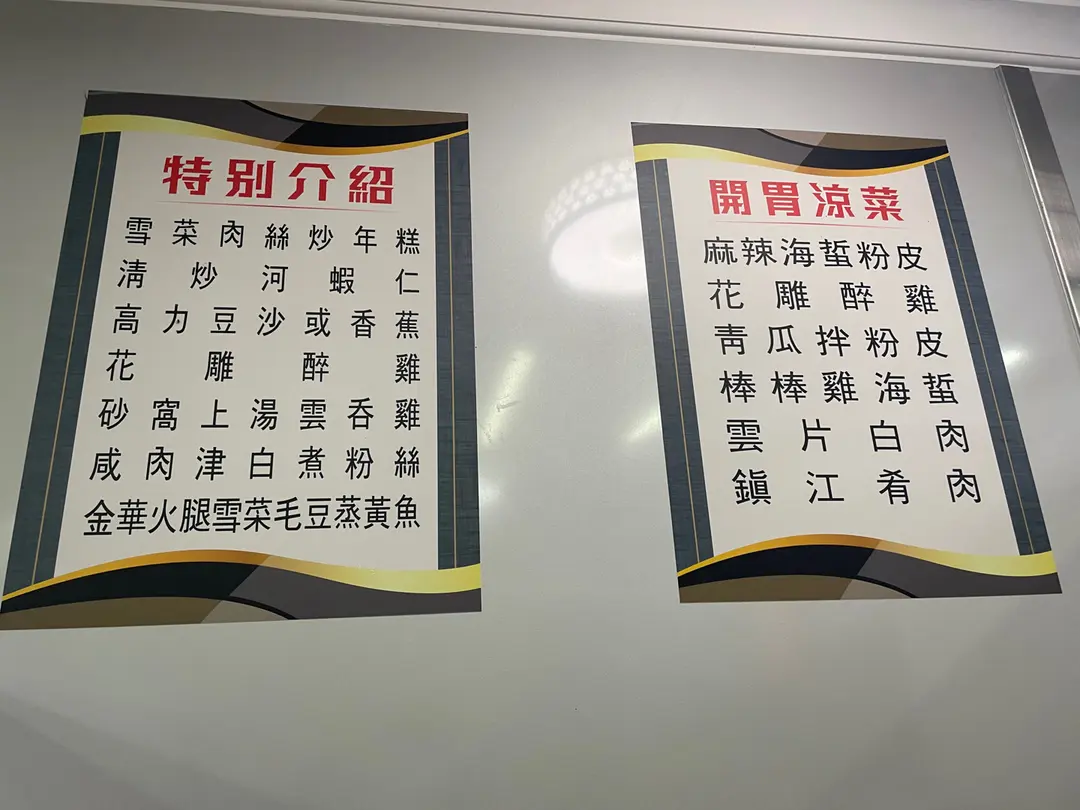 特別介紹
雪菜肉絲炒年糕
清炒河蝦仁
高力豆沙或香蕉
花雕醉雞
砂窩上湯雲吞雞
咸肉津白煮粉絲
金華火腿雪菜毛豆蒸黃魚
開胃涼菜
麻辣海蜇粉皮
花雕醉雞
青瓜拌粉皮
棒棒雞海蜇
雲片白肉
鎮江肴肉